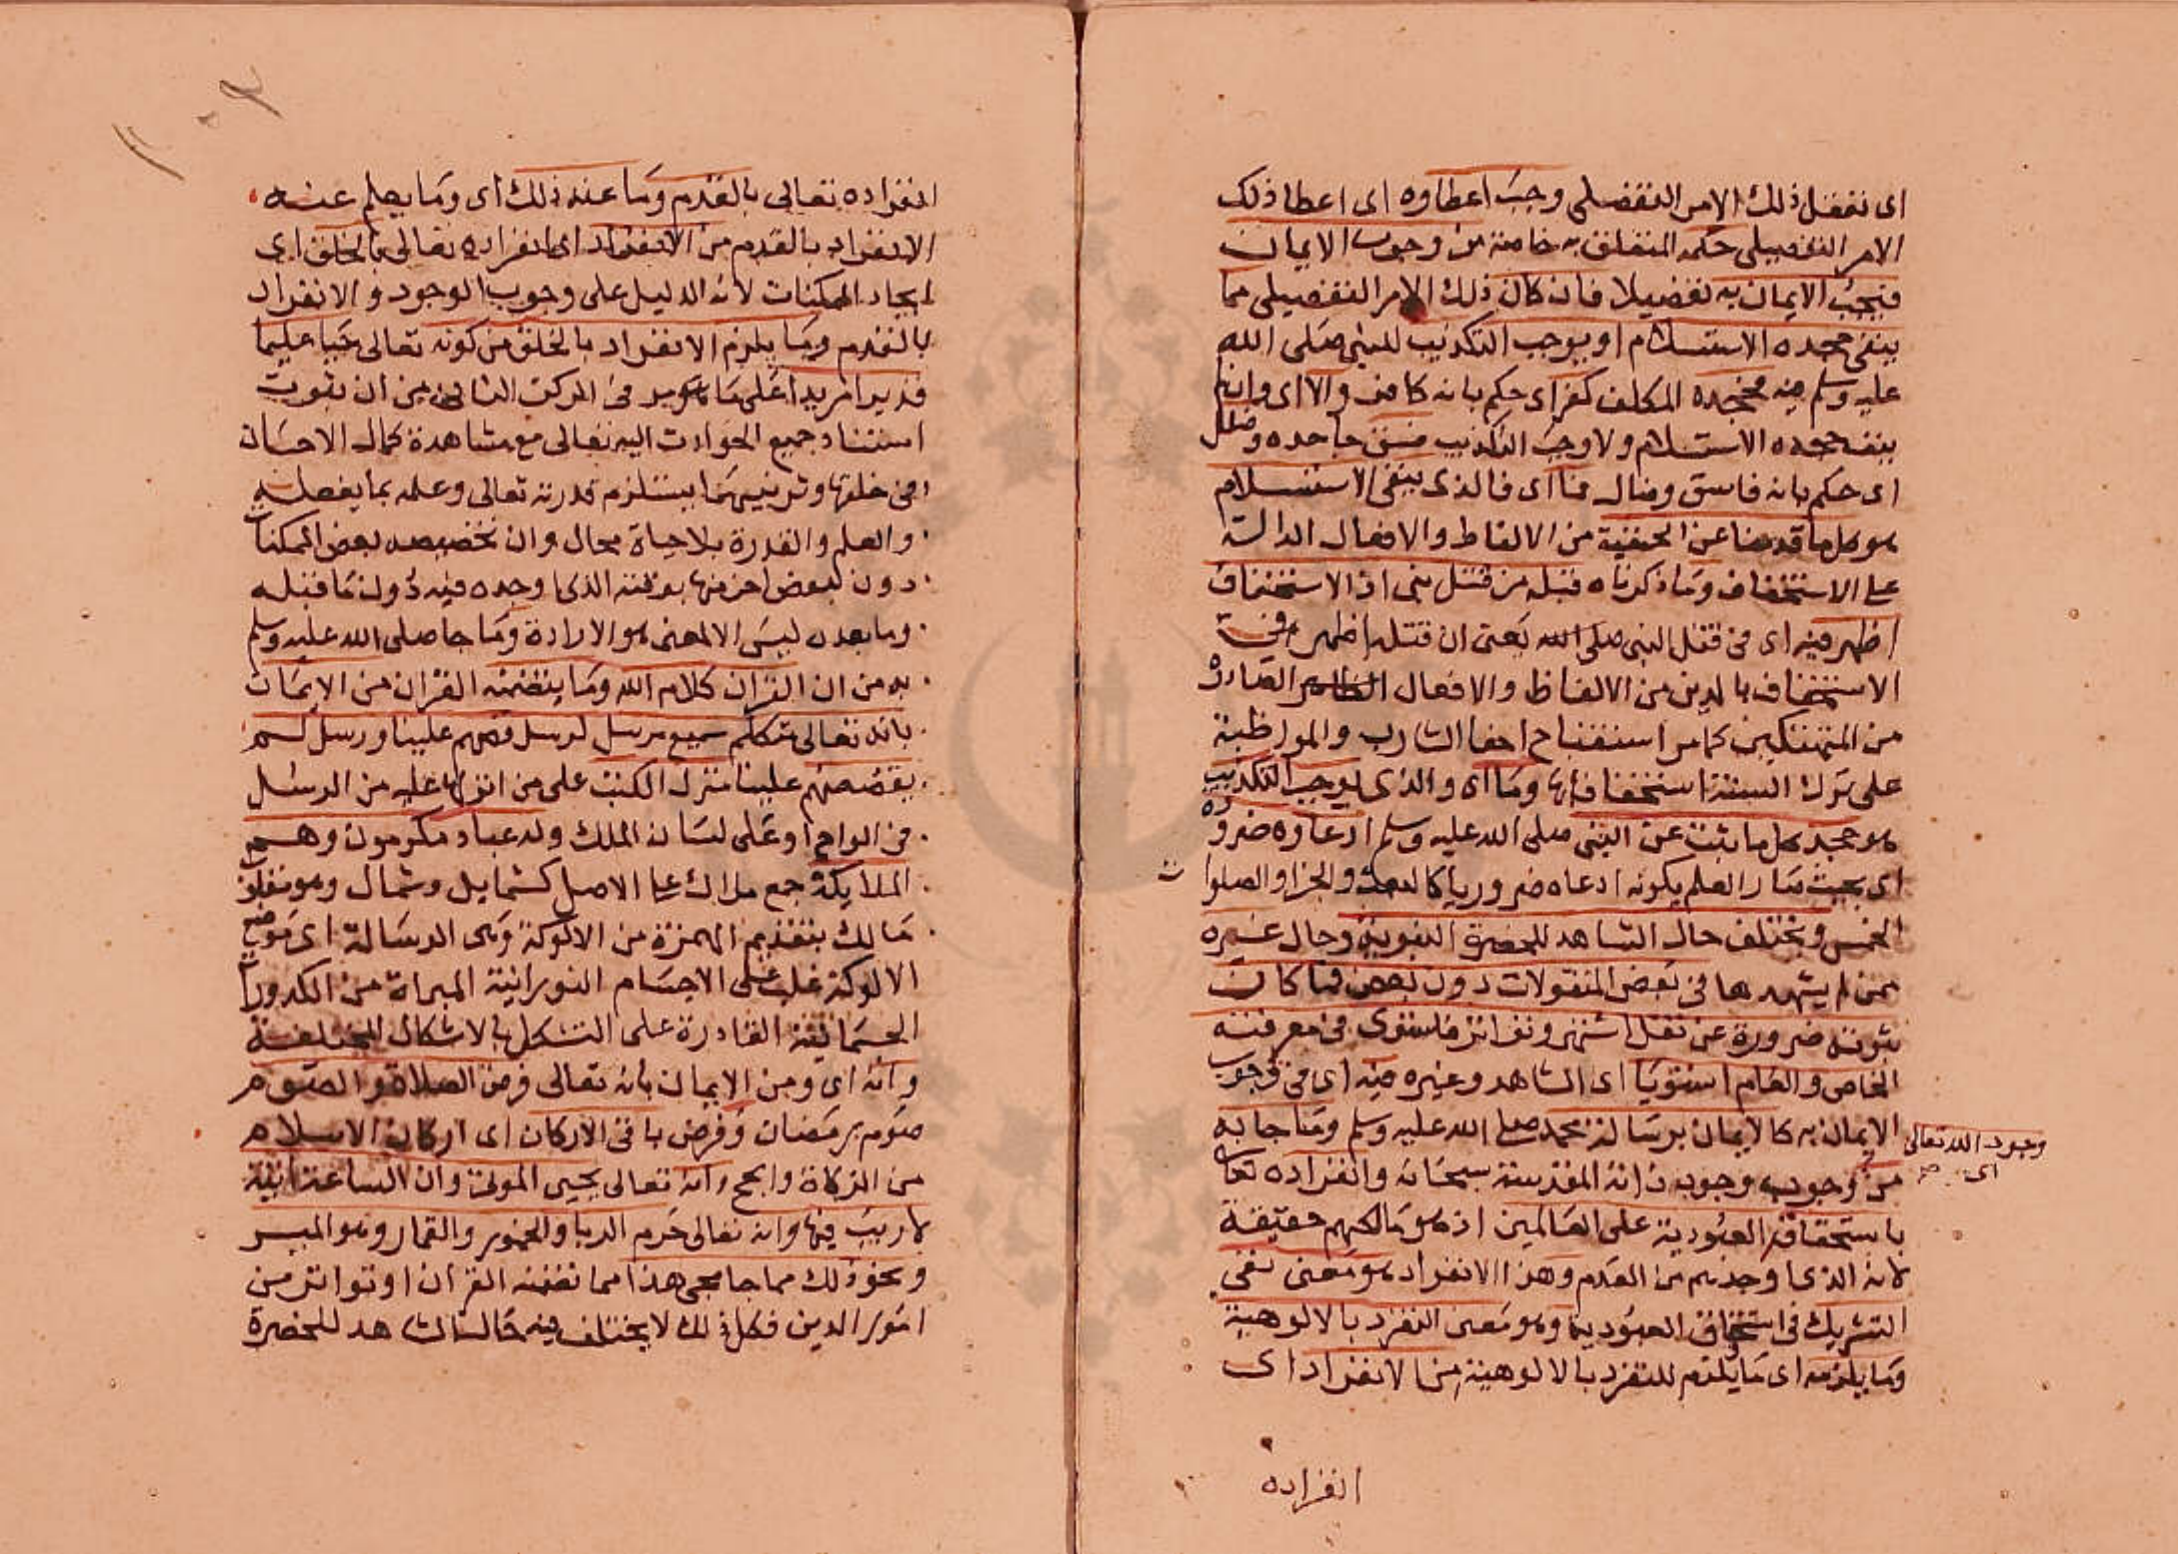 اى تعقل ذلك الامر التفصيلى وجب اعطاوه اى اعطا ذلك
الامر التفصيلى حكمه المتعلق به خاصة من وجوب الايمان
فيجب الايمان به تفصيلا فان كان ذلك الامر التفصيلى مما
ينفى جحده الاستسلام او يوجب التكذيب للنبى صلى الله
عليه وسلم فجحده المكلف كفر اى حكم بانه كافر والا اى وان لم
ينف جحده الاستسلام ولا وجب التكذيب فسق جاحده وضلل
اى حكم بانه فاسق وضال فما اى فالذى ينفى الاستسلام
هو كل ما قدمنا عن الحنفية من الالفاظ والافعال الدالة
على الاستخفاف وما ذكرناه قبله من قتل نبى اذ الاستخفاف
اظهر فيه اى فى قتل النبى صلى الله يعنى ان قتله اظهر فى
الاستخفاف بالدين من الالفاظ والافعال الصادرة
من المتهتكين كما مر استقباح احفا الشارب والمواظبة
على ترك السنة استخفافا بها وما اى والذى يوجب التكذيب
هو جحد كل ما ثبت عن النبى صلى الله عليه وسلم ادعاوه ضرورة
اى بحيث صار العلم بكونه ادعاه ضروريا كالبعث والجزا والصلوات
الخمس ويختلف حال الشاهد للحضرة النبوية وحال غيره
ممن لم يشهدها فى بعض المنقولات دون بعض فما كان
ثبوته ضرورة عن نقل اشتهر وتواتر فاستوى فى معرفته
الخاص والعام استويا اى الشاهد وغيره فيه اى فى وجوب
الايمان به كالايمان برسالة محمد صلى الله عليه وسلم وما جا به
وجود الله تعالى
اى
من وجوب وجود ذاته المقدسة سبحانه وانفراده تعالى
باستحقاق العبودية على العالمين اذ هو مالكهم حقيقة
لانه الذى اوجدهم من العدم وهذا الانفراد هو معنى نفى
التشريك فى استحقاق العبودية وهو معنى التفرد بالالوهية
وما يلزمه اى ما يلزم للتفرد بالالوهية من الانفراد اى
انفراده
انفراده تعالى بالقدم وما عنه ذلك اى وما يعلم عنه
الانفراد بالقدم من الانفراد اى انفراده تعالى بالخلق اى
ايجاد الممكنات لانه الدليل على وجوب الوجود والانفراد
بالقدم وما يلزم الانفراد بالخلق من كونه تعالى حيا عليما
قديرا مريدا على ما هو مر فى الركن الثانى من ان ثبوت
استناد جميع الحوادث اليه تعالى مع مشاهدة كمال الاحسان
فى خلقها وترتيبها يستلزم قدرته تعالى وعلمه بما يفعله
والعلم والقدرة بلا حياة محال وان تخصيصه بعض الممكنات
دون لبعض اخر منها بوقته الذى اوجده فيه دون ما قبله
وما بعده ليس الا لمعنى هو الارادة وما جا صلى الله عليه وسلم
به من ان القران كلام الله وما يتضمنه القران من الايمان
بانه تعالى متكلم سميع مرسل لرسل قصهم علينا ورسل لم
يقصصهم علينا منزل الكتب على من انزلها عليه من الرسل
فى الواح او على لسان الملك وله عباد مكرمون وهم
الملايكة جمع ملاك على الاصل كشمايل وشمال وهو مقلوب
مالك بتقديم الهمزة من الالوكة وهى الرسالة اى موضع
الالوكة غلب على الاجسام النورانية المبراة من الكدورات
الجسمانية القادرة على التشكل بالاشكال المختلفة
وانه اى ومن الايمان بانه تعالى فرض الصلاة والصوم
صوم رمضان وفرض باقى الاركان اى اركان الاسلام
من الزكاة والحج وانه تعالى يحيى الموتى وان الساعة اتية
لا ريب فيها وانه تعالى حرم الربا والخمر والقمار وهو الميسر
ونحو ذلك مما جا مجى هذا مما تضمنه القران او تواتر من
امور الدين فكل ذلك لا يختلف فيه حال الشاهد للحضرة